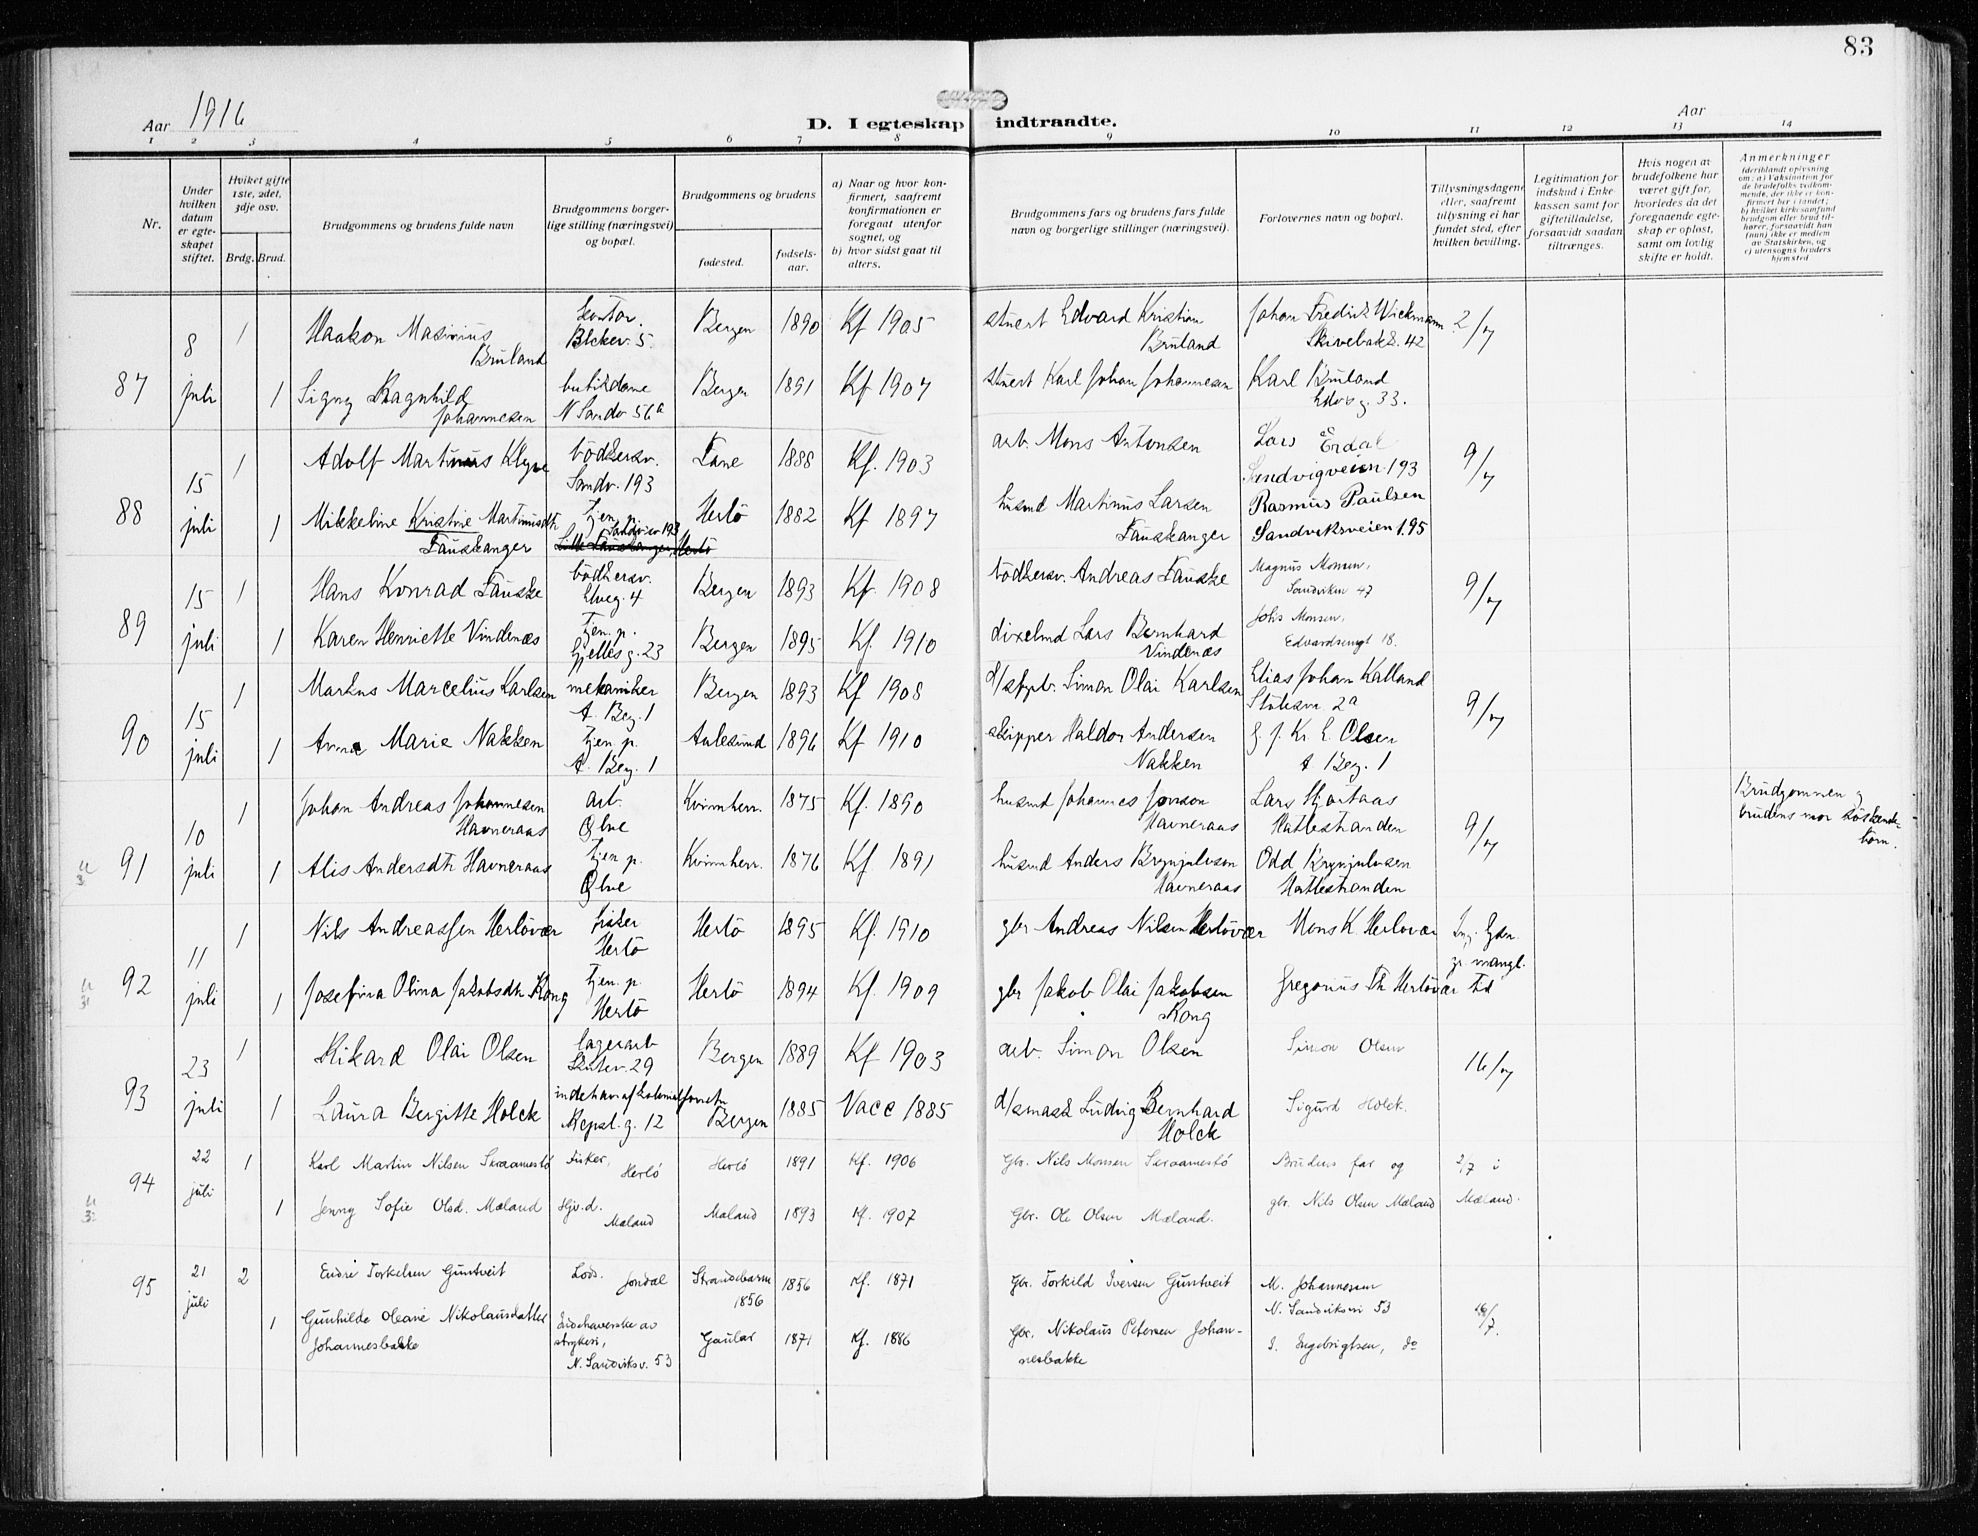 83
Aar 1916
D. I egteskap indtraadte.
Aar
1 2 3 4 5 6 7 8 9 10 11 12 13 14
Nr.
Under hvilken datum er egteskapet stiftet.
Hvilket gifte 1ste, 2det, 3dje osv.
Brdg. Brud.
Brudgommens og brudens fulde navn
Brudgommens borgerlige stilling (næringsvei) og bopæl.
Brudgommens og brudens
fødested.
fødselsaar.
a) Naar og hvor konfirmert, saafremt konfirmationen er foregaat utenfor sognet, og
b) hvor sidst gaat til alters.
Brudgommens fars og brudens fars fulde navn og borgerlige stillinger (næringsvei).
Forlovernes navn og bopæl.
Tillysningsdagene eller, saafremt tillysning ei har fundet sted, efter hvilken bevilling.
Legitimation for indskud i Enkekassen samt for giftetilladelse, forsaavidt saadan tiltrænges.
Hvis nogen av brudefolkene har været gift før, hvorledes da det foregaaende egteskap er opløst, samt om lovlig skifte er holdt.
Anmerkninger
87
8 juli 1 Haakon Bruland Bergen 1890 Kf 1905 stuert Edvard Kristian Bruland Johan Fredrik Wickmann 42 2/7
1 Signy Ragnhild Johannesen butikdame N Sandv 56a Bergen 1891 Kf 1907 stuert Karl Johan Johannesen Karl Bruland 33.
88
15 juli 1 Adolf Martinus bödkersv. Sandv. 193 Fane 1888 Kf. 1903 arb. Mons Antonsen Lars Erdal Sandvigveien 193 9/7
1 Mikkeline Kristine Martinusdtr Fauskanger tjen. p. Sandvien 193 Herlö 1882 Kf 1897 husmd Martinus Larsen Fauskanger Rasmus Paulsen Sandviksveien 195
89
15 juli 1 Hans Konrad Fauske bödkersv. Elveg. 4 Bergen 1893 Kf. 1908 bödkersv. Andreas Fauske Magnus Monsen, Sandviken 47 9/7
1 Karen Henriette Vindenæs Tjen. p. Gjellesg. 23 Bergen 1895 Kf. 1910 Lars Bernhard Vindenæs Johs Monsen, 18.
90
15 juli 1 Markus Marcelius Karlsen mekaniker A. Beg. 1 Bergen 1893 Kf 1908 Simon Olai Karlsen Elias Johan Kalland 2a 9/7
1 Anna Marie Nakken tjen p. A. Beg. 1 Aalesund 1896 Kf 1910 skipper Haldor Andersen Nakken g. f. Kr. E. Olsen A Beg. 1
91
10 juli 1 Johan Andreas Johannesen Havneraas arb. Ølve Kvinnherr. 1875 Kf. 1890 husmd Johannes Jonson Havneraas Lars Hjortaas Hattestranden 9/7 Brudgommen og brudens mor söskendebörn.
1 Alis Andersdtr Havneraas tjen p. Ølve Kvinnherr. 1876 Kf. 1891 husmd Anders Brynjulvson Havneraas Odd Brynjulvsen Hattestranden
92
11 juli 1 Nils Andreassen Herlövær fisker Herlö Herlö 1895 Kf. 1910 gbr Andreas Nilsen Herlövær Mons K. Herlövær Ing. lysn. gr. mangl. tid
1 Josefina Olina Jakobsdtr Kong Tjen. p. Herlö Herlö 1894 Kf. 1909 gbr Jakob Olai Jakobsen Kong Gregorius Th Herlövær
93
23 juli 1 Rikard Olai Olsen lagerarb 29 Bergen 1889 Kf 1903 arb. Simon Olsen Simon Olsen 16/7
1 Laura Bergitte Holck indehav af kolonialforretn Repsl. g. 12 Bergen 1885 Vacc 1885 Ludvig Bernhard Holck Sigurd Holck.
94
22 juli 1 Karl Martin Nilsen Skraamestö Fisker, Herlö Herlö 1891 Kf. 1906 Gbr. Nils Monsen Skraamestö Brudens far og 2/7 i
1 Jenny Sofie Olsd. Mæland Hjv. d. Mæland Mæland 1893 Kf. 1907 Gbr. Ole Olsen Mæland. gbr. Nils Olsen Mæland Mæland.
95
21 juli 2 Endre Torkelsen Guntveit Lods. Jondal Strandebarm 1856 1856 Kf. 1871 Gbr. Torkild Iversen Guntveit M. Johannessen N. Sandviksvei 53 16/7.
1 Gunhilde Oleane Nikolausdatter Johannesbakke Indehaverske av strykeri, N. Sandviksv. 53 Gaular 1871 Kf. 1886 Gbr. Nikolaus Petersen Johannesbakke I. Ingebrigtsen, do